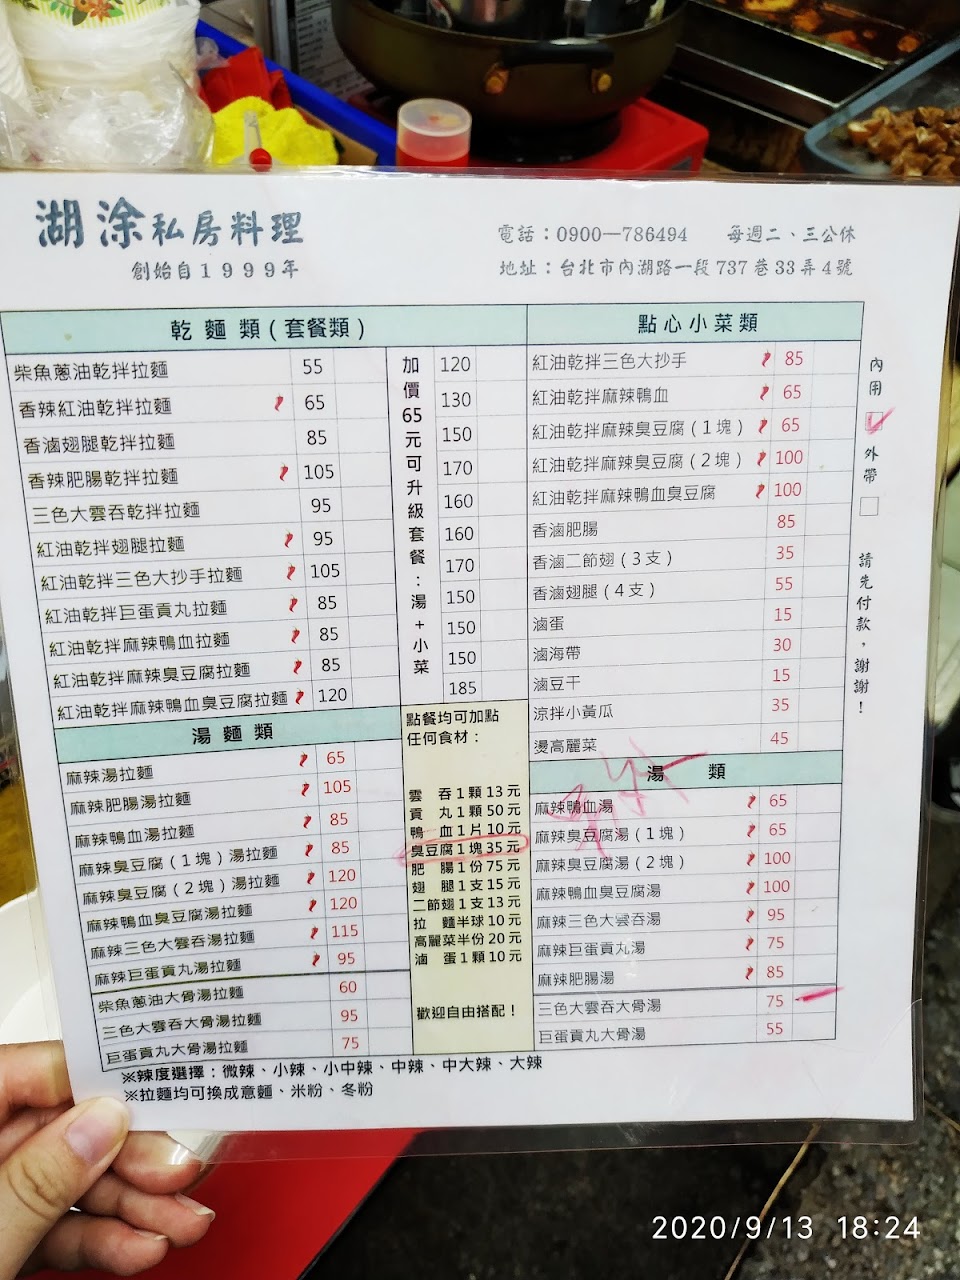 湖涂私房料理
創始自1999年
電話：0900—786494　每週二、三公休
地址：台北市內湖路一段737巷33弄4號
乾麵類(套餐類)
柴魚蔥油乾拌拉麵 55 120
香辣紅油乾拌拉麵 65 130
香滷翅腿乾拌拉麵 85 150
香辣肥腸乾拌拉麵 105 170
三色大雲吞乾拌拉麵 95 160
紅油乾拌翅腿拉麵 95 160
紅油乾拌三色大抄手拉麵 105 170
紅油乾拌巨蛋貢丸拉麵 85 150
紅油乾拌麻辣鴨血拉麵 85 150
紅油乾拌麻辣臭豆腐拉麵 85 150
紅油乾拌麻辣鴨血臭豆腐拉麵 120 185
加價65元可升級套餐：湯+小菜
湯麵類
麻辣湯拉麵 65
麻辣肥腸湯拉麵 105
麻辣鴨血湯拉麵 85
麻辣臭豆腐(1塊)湯拉麵 85
麻辣臭豆腐(2塊)湯拉麵 120
麻辣鴨血臭豆腐湯拉麵 120
麻辣三色大雲吞湯拉麵 115
麻辣巨蛋貢丸湯拉麵 95
柴魚蔥油大骨湯拉麵 60
三色大雲吞大骨湯拉麵 95
巨蛋貢丸大骨湯拉麵 75
點餐均可加點
任何食材：
雲　吞1顆13元
貢　丸1顆50元
鴨　血1片10元
臭豆腐1塊35元
肥　腸1份75元
翅　腿1支15元
二節翅1支13元
拉　麵半球10元
高麗菜半份20元
滷　蛋1顆10元
歡迎自由搭配！
點心小菜類
紅油乾拌三色大抄手 85
紅油乾拌麻辣鴨血 65
紅油乾拌麻辣臭豆腐(1塊) 65
紅油乾拌麻辣臭豆腐(2塊) 100
紅油乾拌麻辣鴨血臭豆腐 100
香滷肥腸 85
香滷二節翅(3支) 35
香滷翅腿(4支) 55
滷蛋 15
滷海帶 30
滷豆干 15
涼拌小黃瓜 35
燙高麗菜 45
湯　類
麻辣鴨血湯 65
麻辣臭豆腐湯(1塊) 65
麻辣臭豆腐湯(2塊) 100
麻辣鴨血臭豆腐湯 100
麻辣三色大雲吞湯 95
麻辣巨蛋貢丸湯 75
麻辣肥腸湯 85
三色大雲吞大骨湯 75
巨蛋貢丸大骨湯 55
內用
外帶
請先付款，謝謝！
※辣度選擇：微辣、小辣、小中辣、中辣、中大辣、大辣
※拉麵均可換成意麵、米粉、冬粉
2020/9/13 18:24